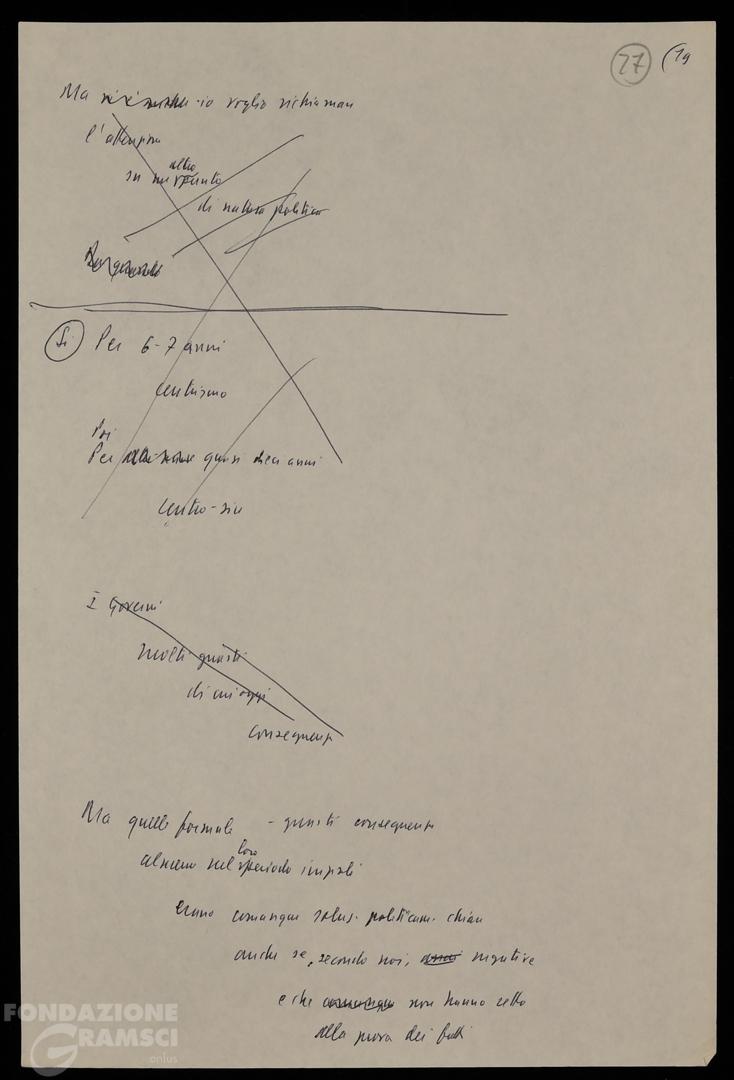 27 (19
Ma io voglio richiamare
l'attenzione
altro
su un punto
di natura politica
Sì Per 6-7 anni
centrismo
Poi
Per quasi dieci anni
centro-sin
I Governi
molti guasti
di cui oggi
conseguenze
Ma quelle formule - guasti conseguenze
loro
almeno nel periodo iniziale
erano comunque soluz. politicam. chiare
anche se, secondo noi, negative
e che non hanno retto
alla prova dei fatti
FONDAZIONE
GRAMSCI
onlus